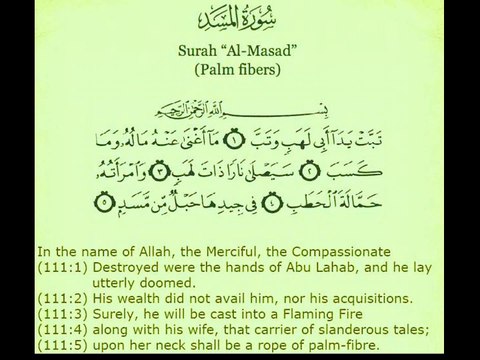 سُورَةُ المَسَد
Surah “Al-Masad”
(Palm fibers)
بِسْمِ اللَّهِ الرَّحْمَٰنِ الرَّحِيمِ
تَبَّتْ يَدَآ أَبِى لَهَبٍ وَتَبَّ ١ مَآ أَغْنَىٰ عَنْهُ مَالُهُۥ وَمَا
كَسَبَ ٢ سَيَصْلَىٰ نَارًا ذَاتَ لَهَبٍ ٣ وَٱمْرَأَتُهُۥ
حَمَّالَةَ ٱلْحَطَبِ ٤ فِى جِيدِهَا حَبْلٌ مِّن مَّسَدٍ ٥
In the name of Allah, the Merciful, the Compassionate
(111:1) Destroyed were the hands of Abu Lahab, and he lay
utterly doomed.
(111:2) His wealth did not avail him, nor his acquisitions.
(111:3) Surely, he will be cast into a Flaming Fire
(111:4) along with his wife, that carrier of slanderous tales;
(111:5) upon her neck shall be a rope of palm-fibre.